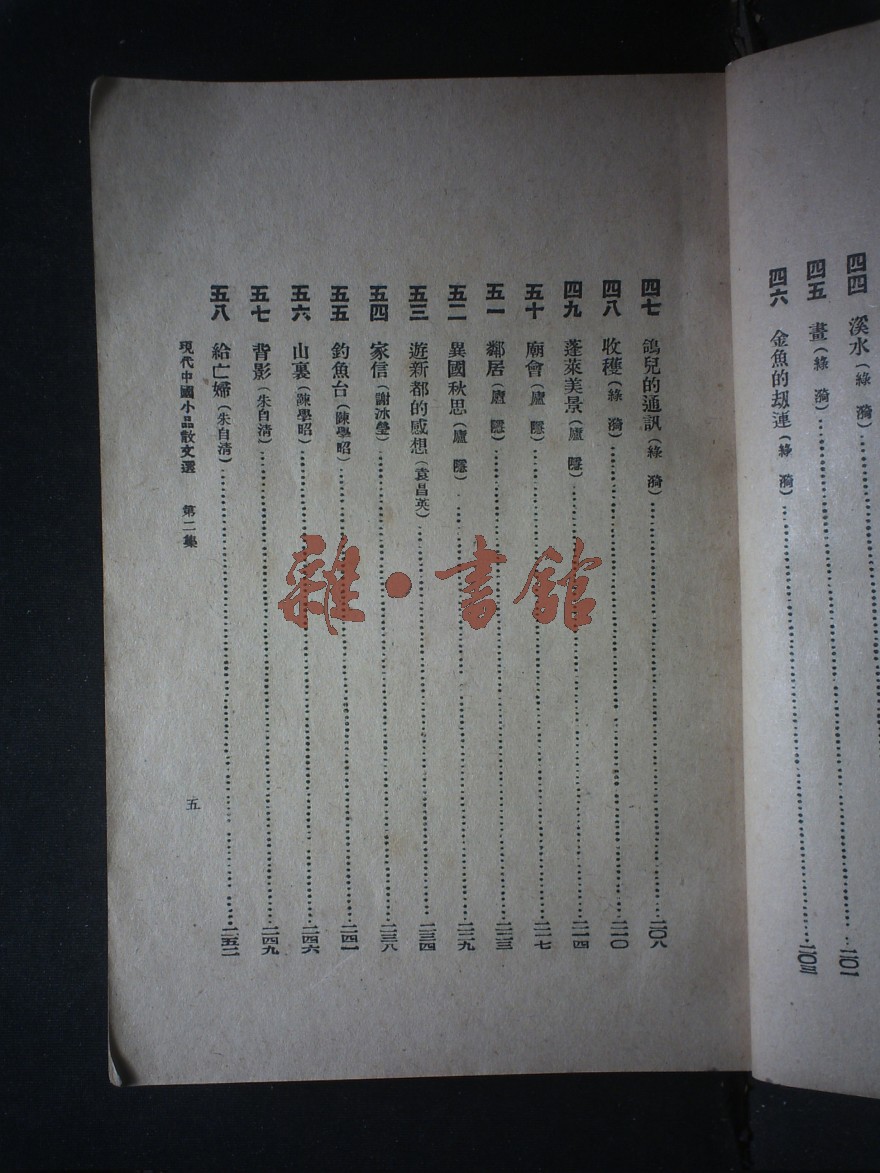 四四 溪水(綠漪)
四五 畫(綠漪)……二〇一
四六 金魚的刼連(綠漪)……二〇三
四七 鴿兒的通訊(綠漪)……二〇八
四八 收穫(綠漪)……二一〇
四九 蓬萊美景(廬隱)……二一四
五十 廟會(廬隱)……二一七
五一 鄰居(廬隱)……二二三
五二 異國秋思(廬隱)……二二九
五三 遊新都的感想(袁昌英)……二三四
五四 家信(謝冰瑩)……二三八
五五 釣魚台(陳學昭)……二四一
五六 山裏(陳學昭)……二四六
五七 背影(朱自清)……二四九
五八 給亡婦(朱自清)……二五二
現代中國小品散文選 第二集
五
雜·書館